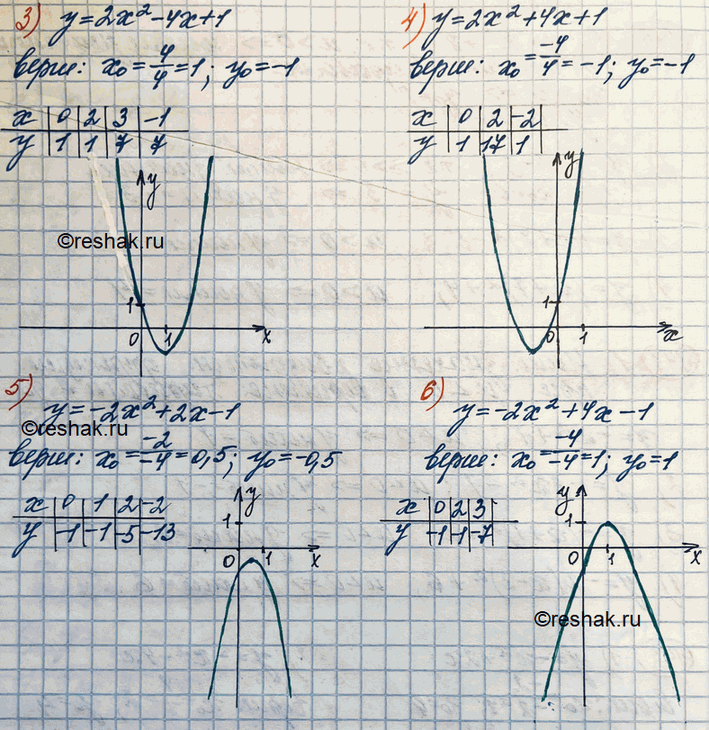 3) y=2x²-4x+1
верш: x₀=4/4=1; y₀=-1
x | 0 | 2 | 3 | -1
y | 1 | 1 | 7 | 7
y
©reshak.ru
1
0 1 x
4) y=2x²+4x+1
верш: x₀=-4/4=-1; y₀=-1
x | 0 | 2 | -2
y | 1 | 17 | 1
y
1
0 1 x
5) y=-2x²+2x-1
©reshak.ru
верш: x₀=-2/-4=0,5; y₀=-0,5
x | 0 | 1 | 2 | -2
y | -1 | -1 | -5 | -13
y
1
0 1 x
6) y=-2x²+4x-1
верш: x₀=-4/-4=1; y₀=1
x | 0 | 2 | 3
y | -1 | -1 | -7
y
1
0 1 x
©reshak.ru